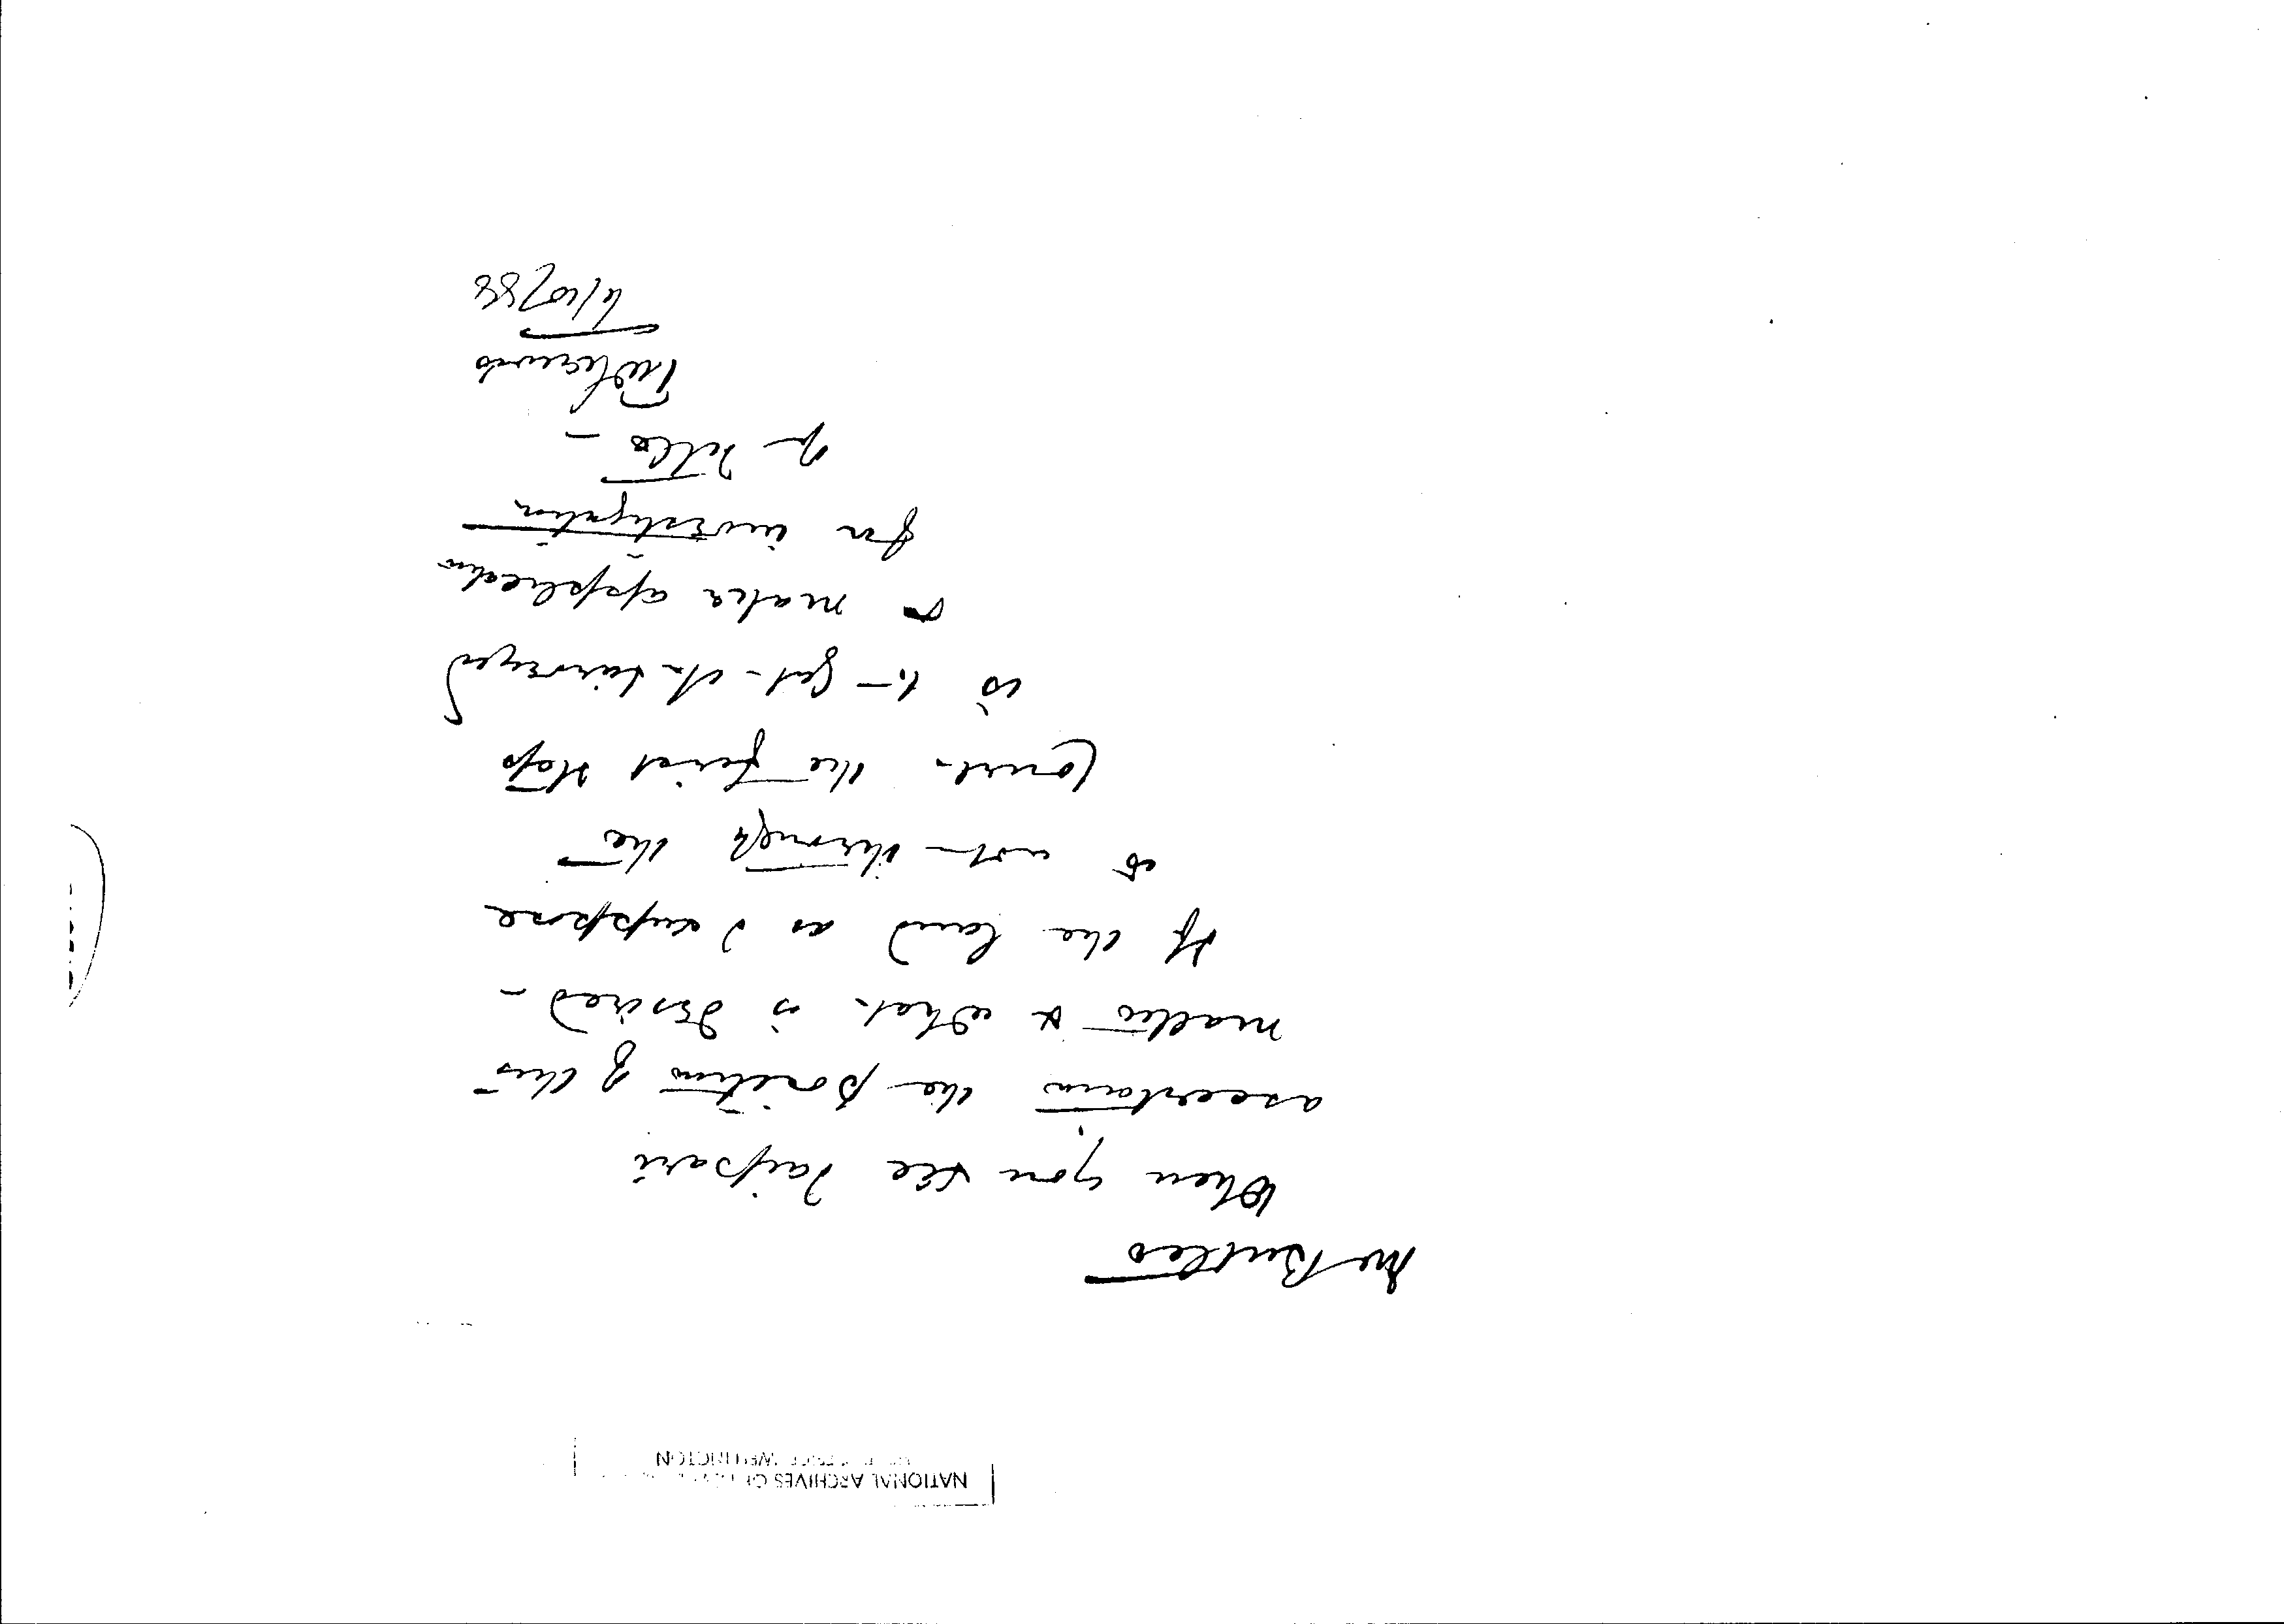 NATIONAL ARCHIVES OF
WELLINGTON
Mr Butler
When you see Taipari
ascertain the position of this
matter & what is desired -
If the land as I suppose
is not through the
Court - the first step
is to get it surveyed
& make application
for investigation
of title -
4/10/88